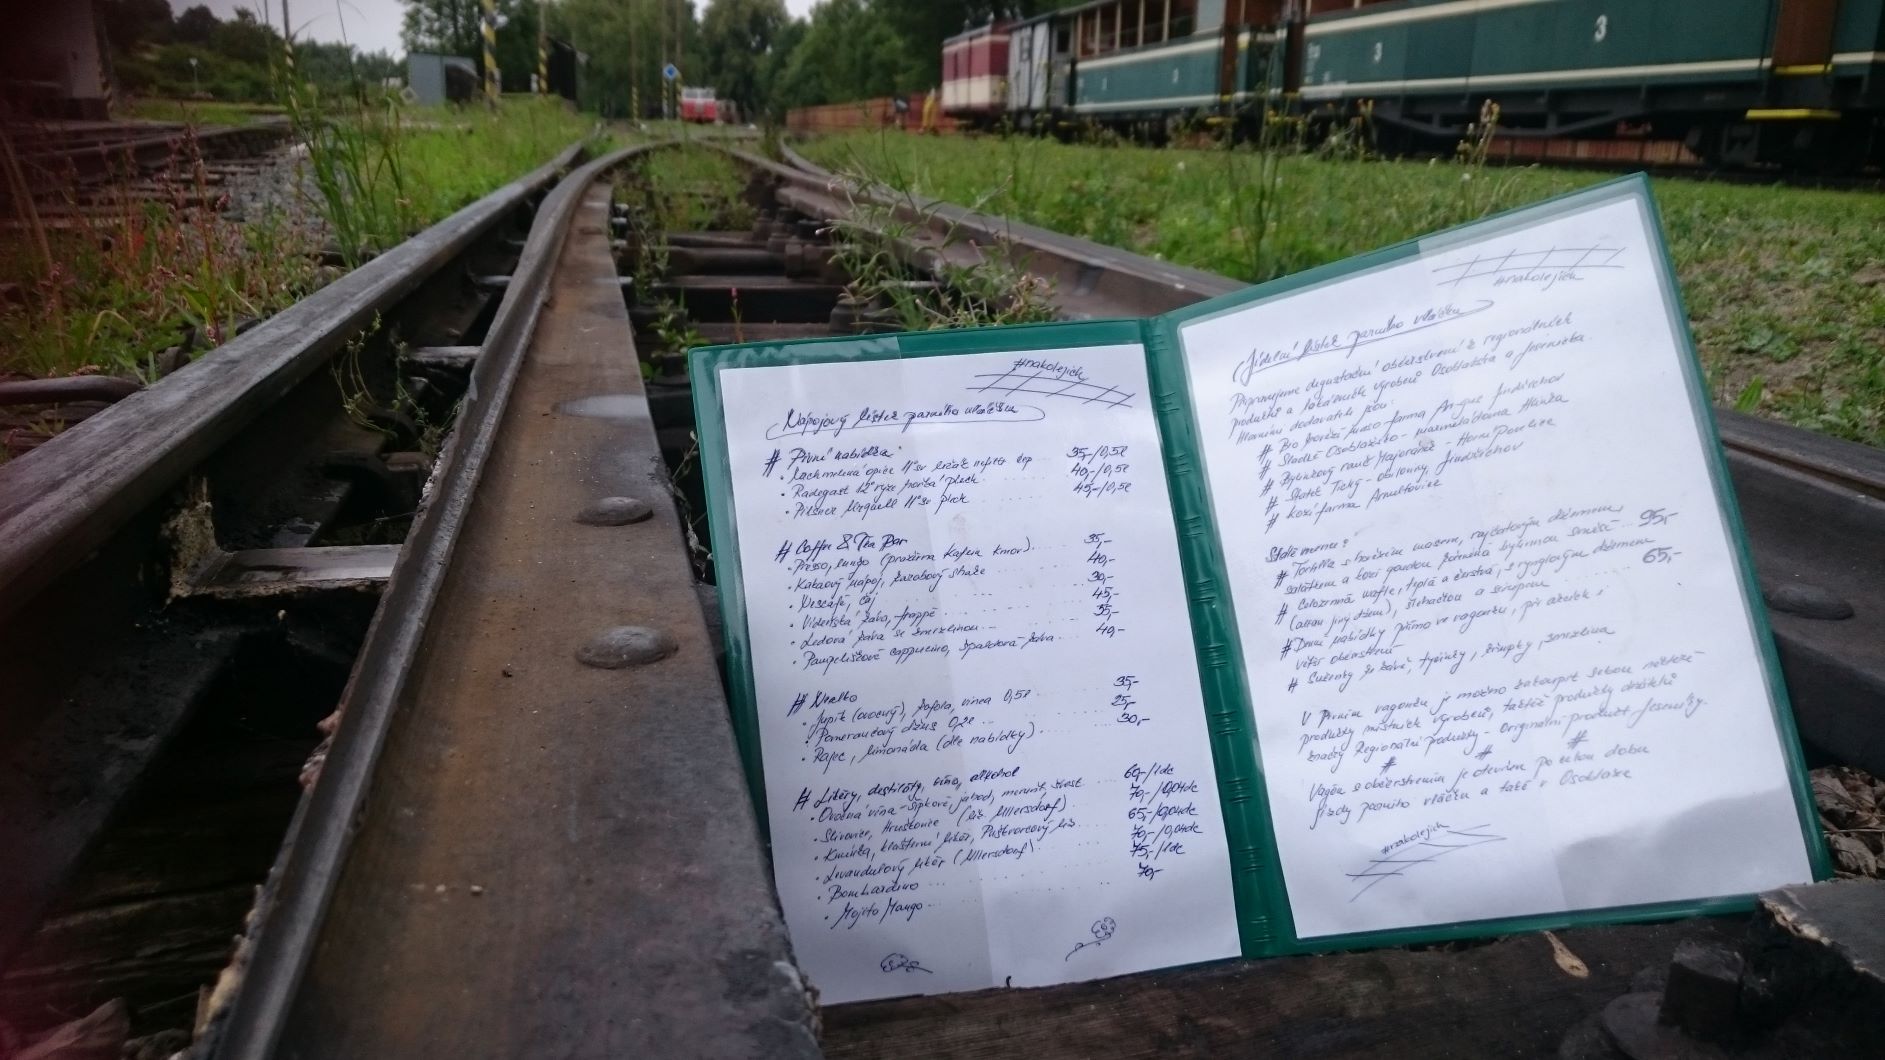 3
3
#nakolejích
Nápojový lístek parního vláčku
# Pivní nabídka
35,-/0,5l
40,-/0,5l
• Radegast 12° ryze hořká plech
45,-/0,5l
• Pilsner Urquell 11°sv plech
# Coffee & Tea Bar
• Presso, lungo (pražírna Kafein Krnov)
35,-
• Kakaový nápoj,
40,-
• Nescafé, čaj
30,-
• Vídeňská káva, frappé
45,-
• Ledová káva se zmrzlinou
55,-
cappucino,
40,-
# Nealko
• Jupík (ovocný), kofola, vinea 0,5l
35,-
• Pomerančový džus 0,2l
25,-
• Rajec, limonáda (dle nabídky)
30,-
# Likéry, destiláty, víno, alkohol
60,-/1dc
• Ovocná vína - šípkové, jahod, meruňk,
70,-/0,04dc
• Slivovice, Hruškovice (Ullersdorf)
65,-/0,04dc
• Kmínka, klášterní likér, Puškvorcový
70,-/0,04dc
• Levandulový likér (Ullersdorf)
75,-/1dc
• Bombardino
70,-
• Mojito Mango
#nakolejích
Jídelní lístek parního vláčku
Připravujeme degustační občerstvení z regionálních
produktů a lokálních výrobců Osoblažska a Jesenicka.
Hlavními dodavateli jsou:
# Bio hovězí maso farma Angus Jindřichov
# Sladké Osoblažsko - marmeládovna Hlinka
# Bylinkový ranč Majoránka - Horní Povelice
# Statek Tichý - Jindřichov
# Kozí farma Arnultovice
Stálé menu:
# Tortilla s hovězím masem, rajčatovým džemem,
salátkem a kozí goudou bylinnou směsí
95,-
# Celozrnná wafle, teplá a čerstvá, s rynglovým džemem
(alt. jiný džem), šlehačkou a sirupem
65,-
# Denní nabídky přímo ve vagonku, při akcích i
větší občerstvení
# Sušenky ke kávě, tyčinky, křupky, zmrzlina
V Pivním vagonku je možno zakoupit sebou některé
produkty místních výrobců, taktéž produkty držitelů
značky Regionální potraviny - Originální produkt Jeseníky.
# # #
Vagón s občerstvením je otevřen po celou dobu
jízdy parního vláčku a také v Osoblaze
#nakolejích